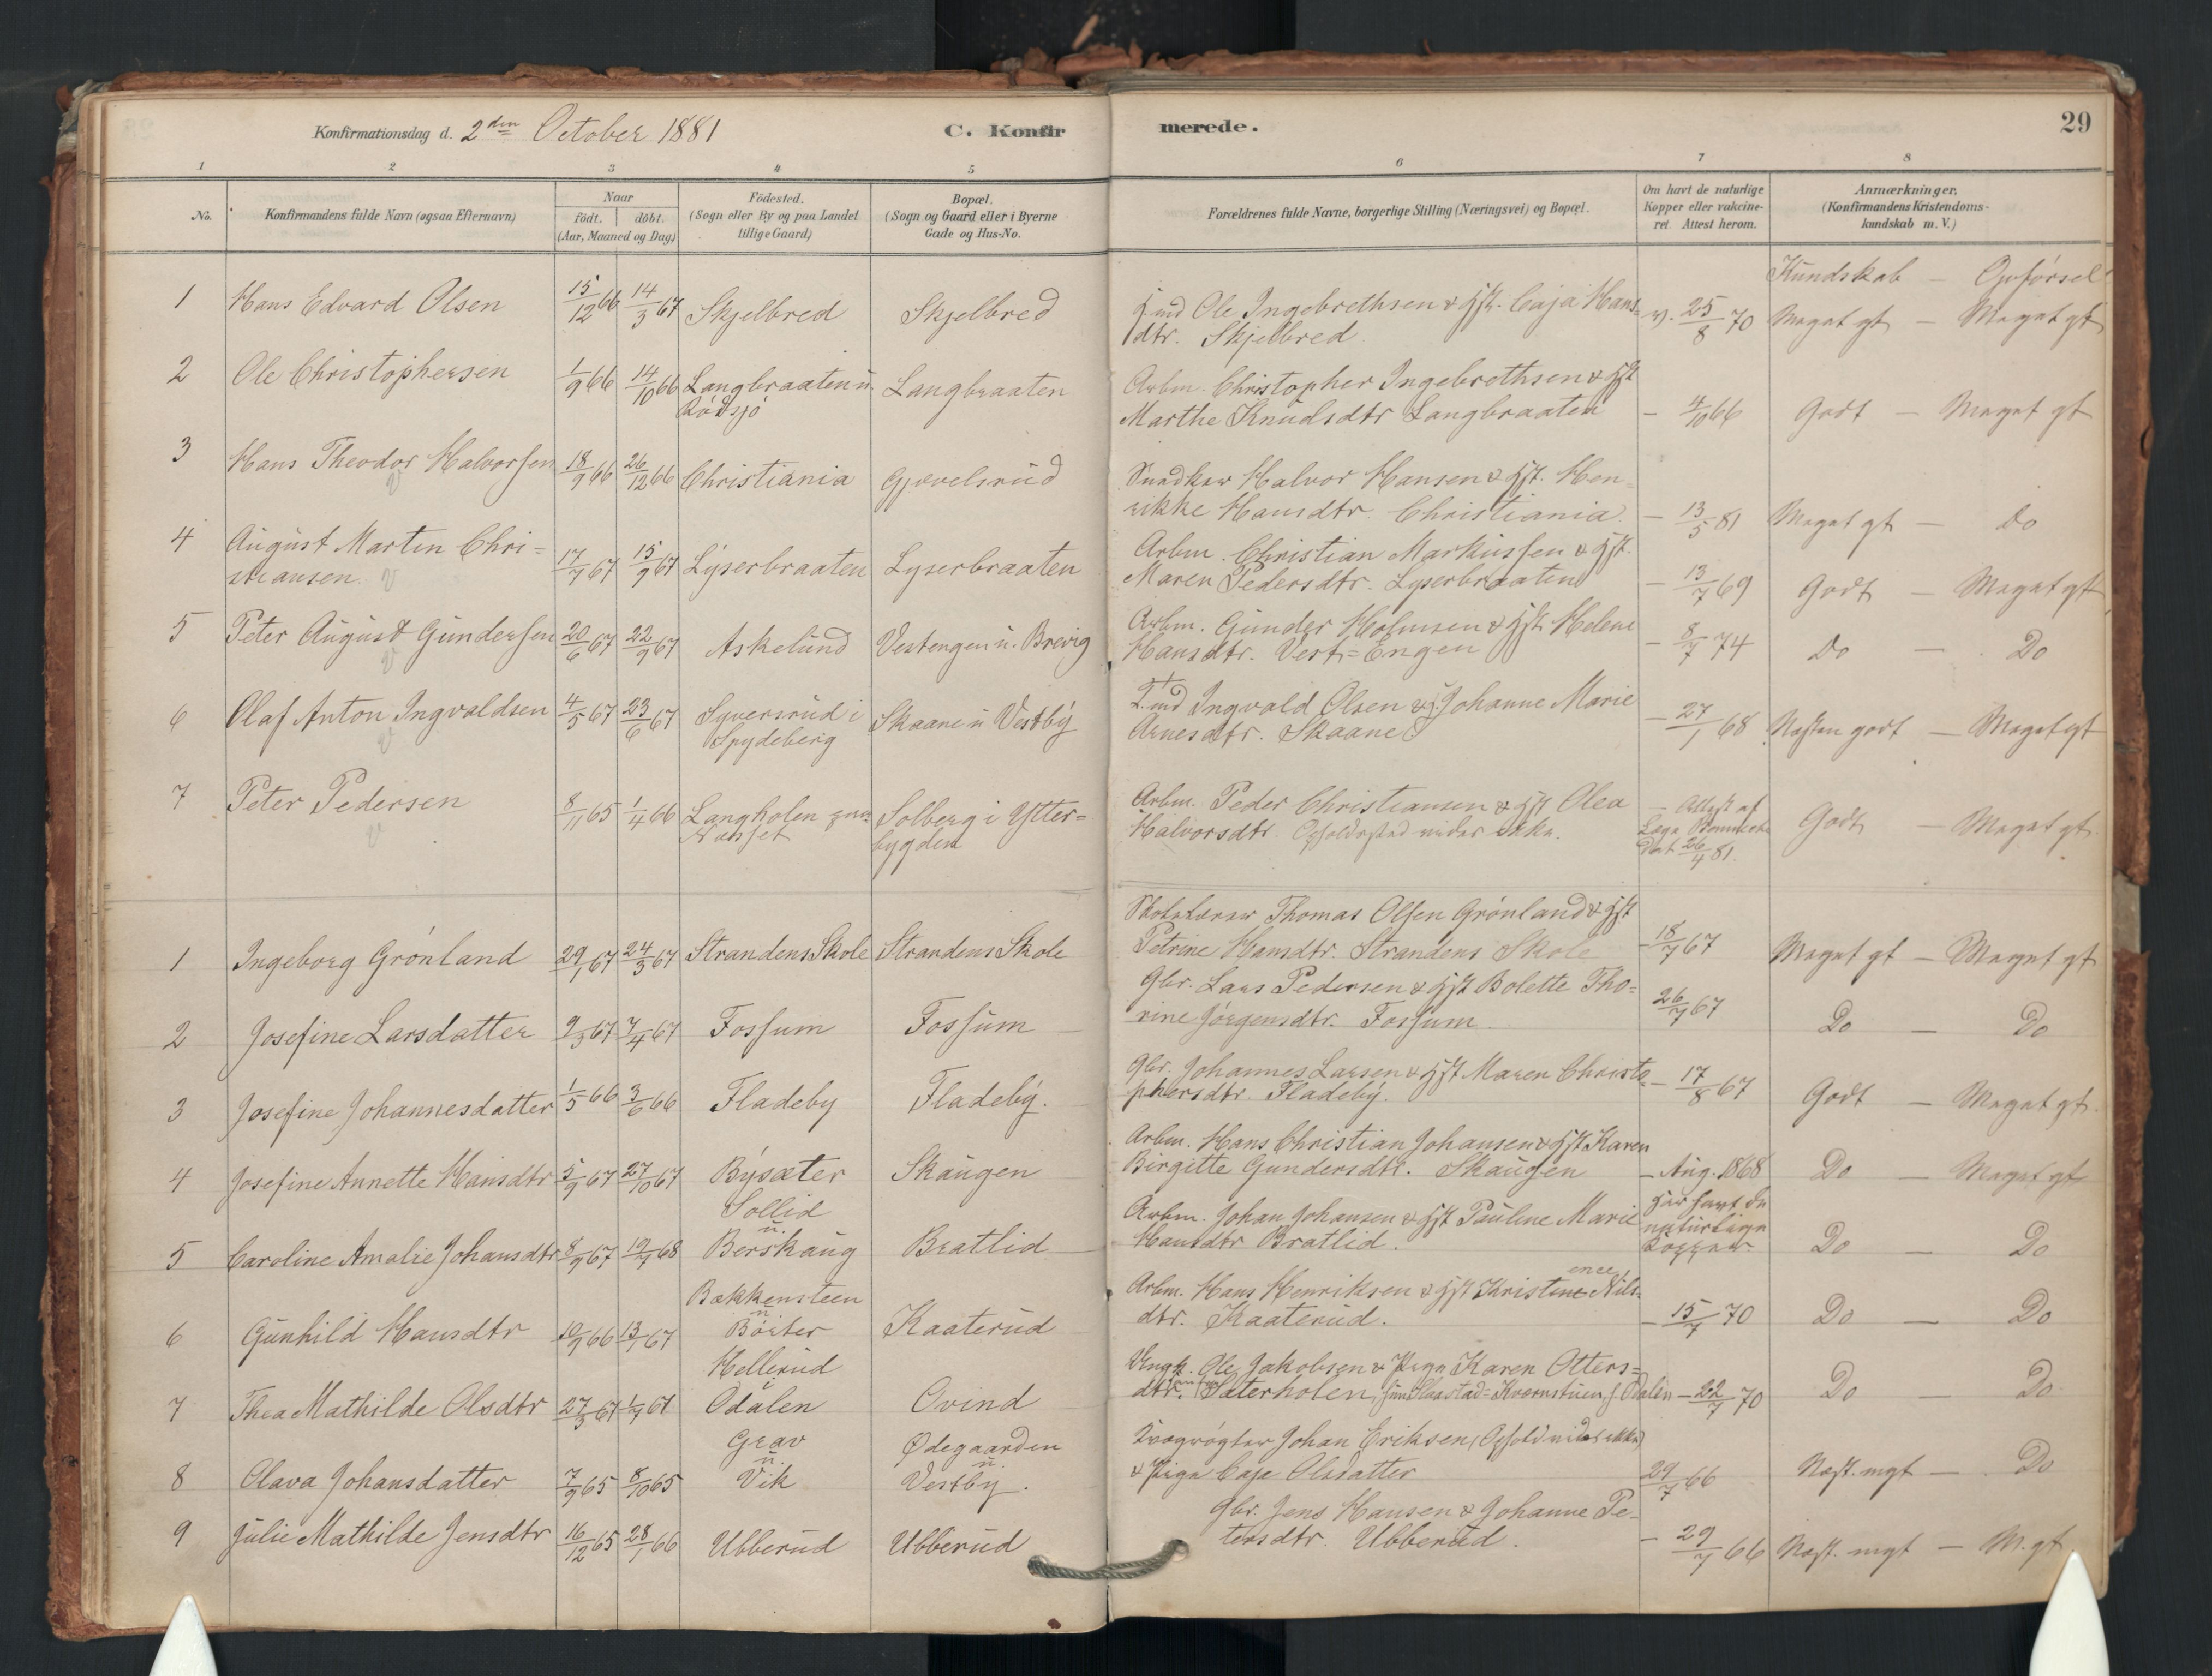 Konfirmationsdag d. 2den October 1881 C. Konfirmerede. 29
1 2 3 4 5 6 7 8
No. Konfirmandens fulde Navn (ogsaa Efternavn) Naar födt. döbt. (Aar, Maaned og Dag.) Födested. (Sogn eller By og paa Landet tillige Gaard.) Bopæl. (Sogn og Gaard eller i Byerne Gade og Hus-No. Forældrenes fulde Navne, borgerlige Stilling (Næringsvei) og Bopæl. Om havt de naturlige Kopper eller vakcineret. Attest herom. Anmærkninger. (Konfirmandens Kristendomskundskab m. V.)
Kundskab – Opførsel
1 Hans Edvard Olsen 15/12 66 14/3 67 Skjelbred Skjelbred Ole Ingebrethsen & Hst. Caja Hans=
dtr. Skjelbred v. 25/8 70 Meget gt – Meget gt
2 Ole Christophersen 1/9 66 14/10 66 Langbraaten u. Langbraaten Arbm. Christopher Ingebrethsen & Hst
Rödsjö Marthe Knudsdtr Langbraaten – 4/10 66 Godt – Meget gt
3 Hans Theodor Halvorsen 18/9 66 26/12 66 Christiania Gjævelsrud Halvor Hansen & Hst. Hen=
rikke Hansdtr. Christiania. – 13/5 81 Meget gt – do
4 August Martin Chri= 17/7 67 15/9 67 Lyserbraaten Lyserbraaten Arbm. Christian Markussen & Hst.
stiansen Maren Pedersdtr. Lyserbraaten – 13/7 69 Godt – Meget gt
5 Peter August Gundersen 20/6 67 22/9 67 Askelund Vestengen u. Brevig Arbm. Gunder Holmsen & Hst. Helene
Hansdtr. Vest=Engen – 8/7 74 Do – Do
6 Olaf Anton Ingvaldsen 4/5 67 23/6 67 Syversrud i Skaane u Vestby Ingvald Olsen & Johanne Marie
Spydeberg Arnesdtr. Skaane – 27/1 68 Næsten godt – Meget gt
7 Peter Pedersen 8/11 65 1/4 66 Langholen Solberg i Ytter= Arbm. Peder Christiansen & Hst Olea – Attest af
Næsset bygden Halvorsdtr. Opholdssted vides ikke. Læge
Dat 26/4 81. Godt – Meget gt
1 Ingeborg Grönland 29/1 67 24/3 67 Strandens Skole Strandens Skole Skolelærer Thomas Olsen Grönland & Hst
Petrine Hansdtr. Strandens Skole 18/7 67 Meget gt – Meget gt
2 Josefine Larsdatter 9/3 67 7/4 67 Fossum Fossum Gbr. Lars Pedersen & Hst Bolette Tho=
rine Jörgensdtr. Fossum. 26/7 67 Do – Do
3 Josefine Johannesdatter 1/5 66 3/6 66 Fladeby Fladeby. Gbr. Johannes Larsen & Hst Maren Christo
phersdtr. Fladeby. – 17/8 67 Godt – Meget gt.
4 Josefine Annette Hansdtr 5/9 67 27/10 67 Bysæter Skaugen Arbm. Hans Christian Johansen & Hst Karen
Birgitte Gundersdtr. Skaugen – Aug. 1868 Do – Meget gt
5 Caroline Amalie Johansdtr 8/9 67 19/4 68 Sollid u. Berskaug Bratlid Arbm. Johan Johansen & Hst Pauline Marie
Hansdtr Bratlid. Har havt de naturlige Kopper Do – Do
6 Gunhild Hansdtr 10/9 66 13/1 67 Bakkensteen u Börter Kaaterud Arbm. Hans Henriksen & Hst Kristine Nils=
dtr. Kaaterud. – 15/7 70 Do – Do
7 Thea Mathilde Olsdtr 27/3 67 1/7 67 Hellerud i Odalen Ovind Ungk. Ole Jakobsen & Pige Karen Otters=
dtr. Sæterholen, Odalen – 22/7 70 Do – Do
8 Olava Johansdatter 7/9 65 8/10 65 Grav u. Vik Ödegaarden u. Vestby. Johan Eriksen (Ophold vides ikke)
& Pige Caje Olsdatter 29/7 66 Næst. mgt – Do
9 Julie Mathilde Jensdtr 16/12 65 28/1 66 Ubberud Ubberud Gbr. Jens Hansen & Johanne Pe=
tersdtr. Ubberud. – 29/7 66 Næst. mgt – M. gt